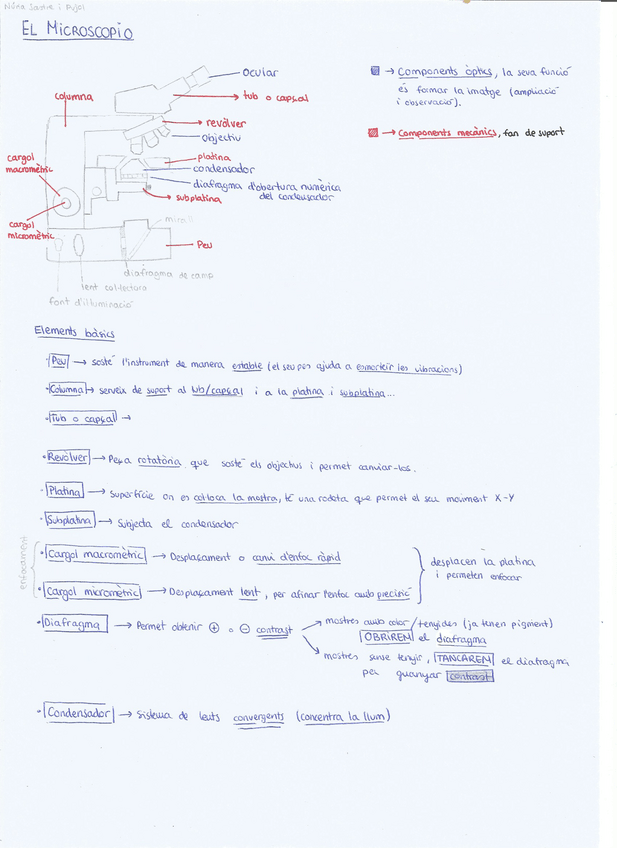 Núria Sastre i Pujol
EL MICROSCOPIO
ocular
columna
tub o capçal
revòlver
objectiu
platina
condensador
cargol
macromètric
diafragma d'obertura numèrica
del condensador
subplatina
mirall
cargol
micromètric
Peu
diafragma de camp
lent col·lectora
font d'il·luminació
→ Components òptics, la seva funció
és formar la imatge (ampliació
i observació).
→ Components mecànics, fan de suport
Elements bàsics
· Peu → sosté l'instrument de manera estable (el seu pes ajuda a esmorteir les vibracions)
· Columna → serveix de suport al tub/capçal i a la platina i subplatina...
· Tub o capçal →
· Revòlver → Peça rotatòria que sosté els objectius i permet canviar-los.
· Platina → Superfície on es col·loca la mostra, té una rodeta que permet el seu moviment X-Y
· Subplatina → Subjecta el condensador
enfocament
· Cargol macromètric → Desplaçament o canvi d'enfoc ràpid
· Cargol micromètric → Desplaçament lent, per afinar l'enfoc amb precisió
desplacen la platina
i permeten enfocar
· Diafragma → Permet obtenir + o - contrast
mostres amb color/tenyides (ja tenen pigment)
OBRIREM el diafragma
mostres sense tenyir, TANCAREM el diafragma
per guanyar contrast
· Condensador → Sistema de lents convergents (concentra la llum)